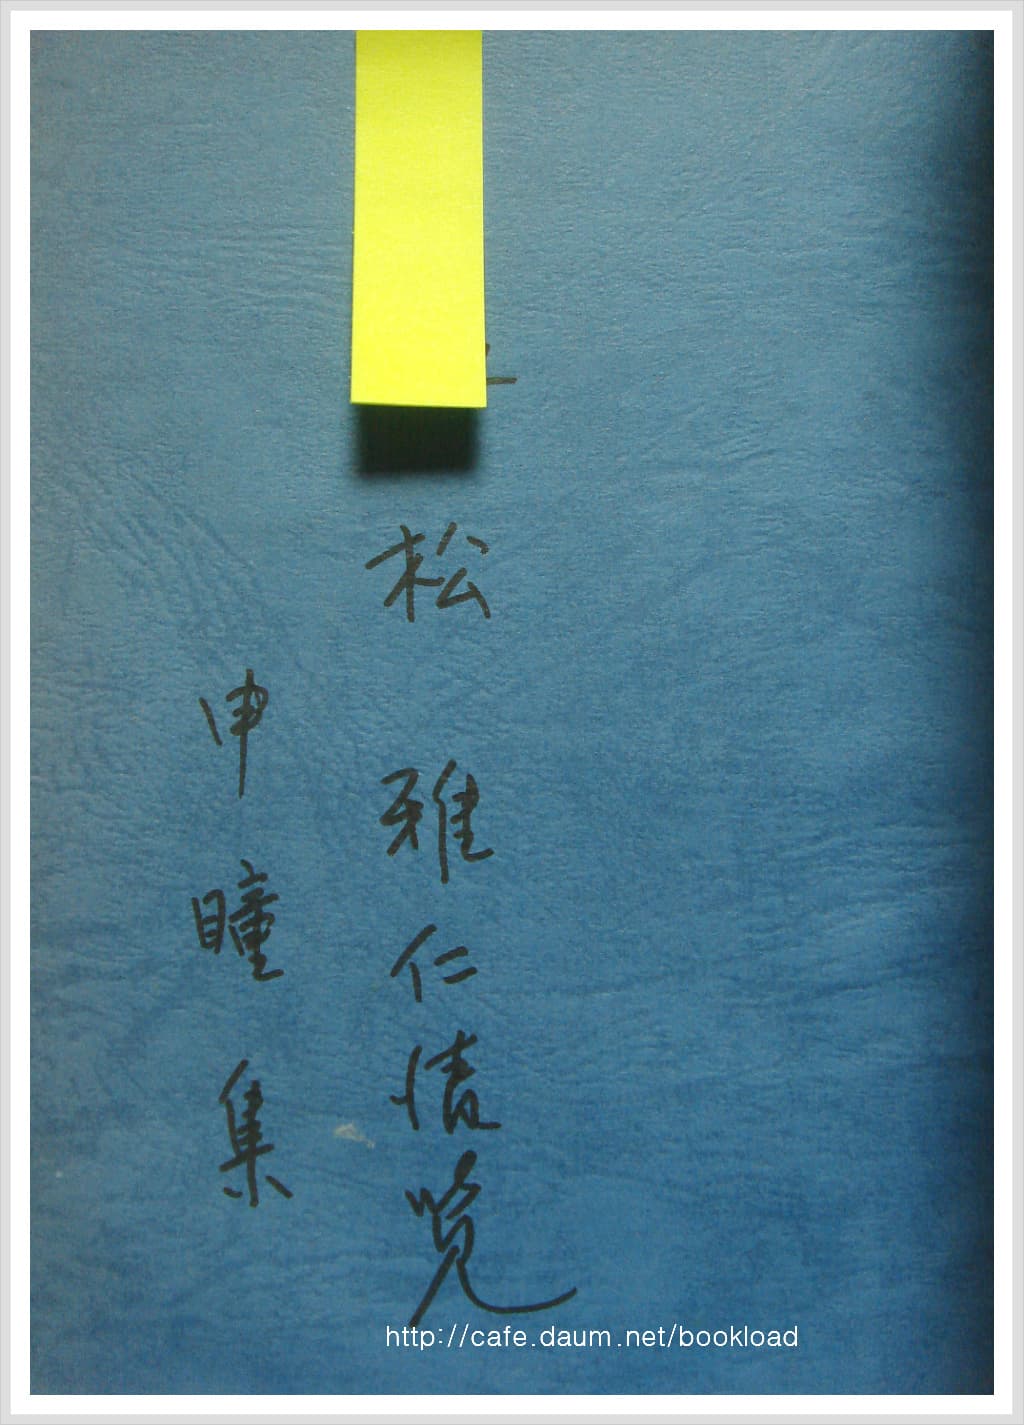 松 雅仁情览
申瞳集
http://cafe.daum.net/bookload